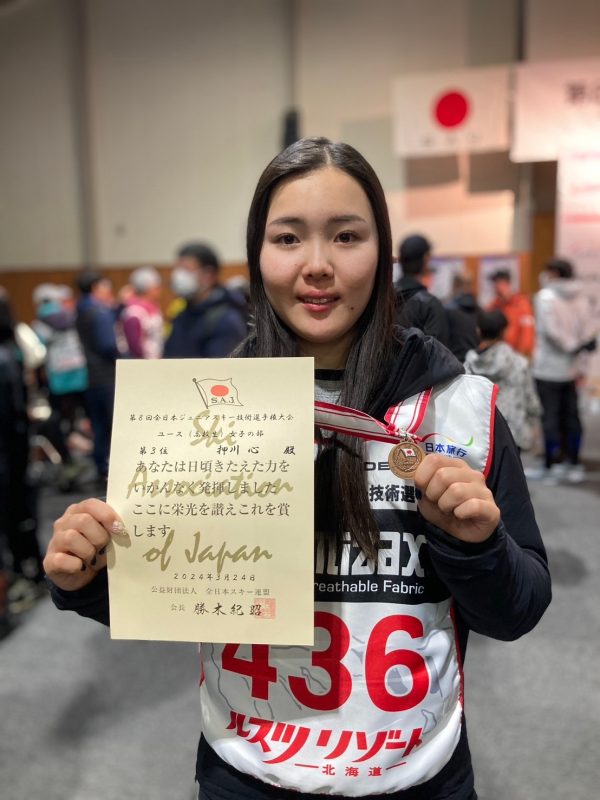 S.A.J
第8回全日本ジュニアスキー技術選手権大会
ユース（高校生）女子の部
第3位 押川 心 殿
あなたは日頃きたえた力を
いかんなく発揮しました
ここに栄光を讃えこれを賞
します
Ski
Association
of Japan
2024年3月24日
公益財団法人 全日本スキー連盟
会長 勝木紀昭
日本旅行
技術選
Breathable Fabric
436
ルスツリゾート
北海道